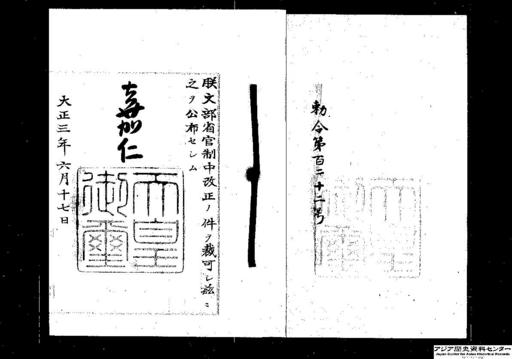 勅令第百二十二号
朕文部省官制中改正ノ件ヲ裁可シ茲ニ
之ヲ公布セシム
嘉仁
大正三年六月十七日
天皇
御璽
アジア歴史資料センター
Japan Center for Asian Historical Records